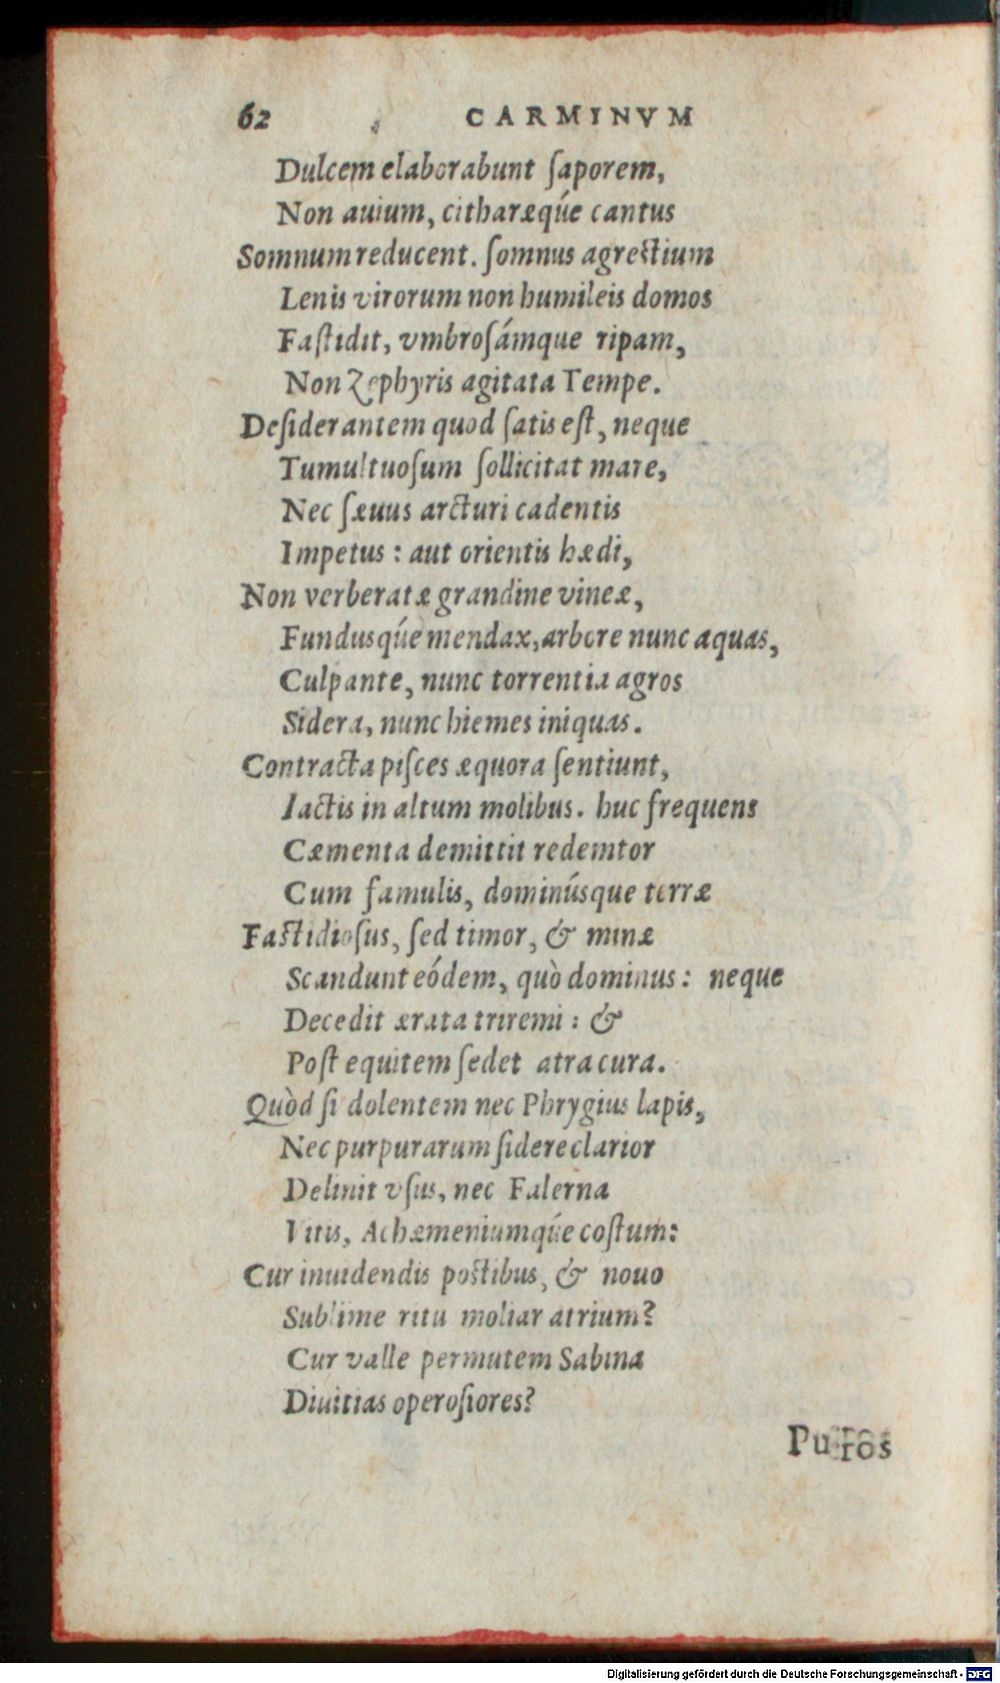 62 CARMINVM
Dulcem elaborabunt ſaporem,
Non auium, citharæq́ue cantus
Somnum reducent. ſomnus agreſtium
Lenis virorum non humileis domos
Faſtidit, vmbroſámque ripam,
Non Zephyris agitata Tempe.
Deſiderantem quod ſatis eſt, neque
Tumultuoſum ſollicitat mare,
Nec ſæuus arcturi cadentis
Impetus : aut orientis hædi,
Non verberatæ grandine vineæ,
Fundusq́ue mendax, arbore nunc aquas,
Culpante, nunc torrentia agros
Sidera, nunc hiemes iniquas.
Contracta piſces æquora ſentiunt,
Iactis in altum molibus. huc frequens
Cæmenta demittit redemtor
Cum famulis, dominúsque terræ
Faſtidioſus, ſed timor, & minæ
Scandunt eódem, quò dominus : neque
Decedit ærata triremi : &
Poſt equitem ſedet atra cura.
Quòd ſi dolentem nec Phrygius lapis,
Nec purpurarum ſidere clarior
Delinit vſus, nec Falerna
Vitis, Achæmeniumq́ue coſtum:
Cur inuidendis poſtibus, & nouo
Sublime ritu moliar atrium?
Cur valle permutem Sabina
Diuitias operoſiores?
Puros
Digitalisierung gefördert durch die Deutsche Forschungsgemeinschaft - DFG